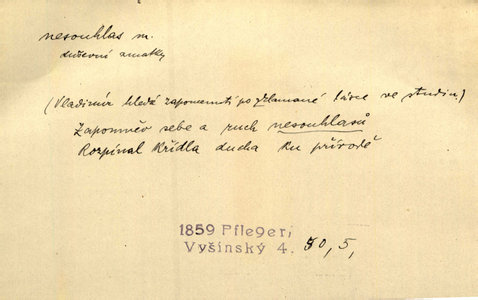 nesouhlas m.
duševní zmatky
(Vladimír hledá zapomenutí po zklamané lásce ve studiu.)
Zapomněv sebe a ruch nesouhlasů
Rozpínal křídla ducha ku přírodě
1859 Pfleger,
Vyšínský 4. 50, 5,